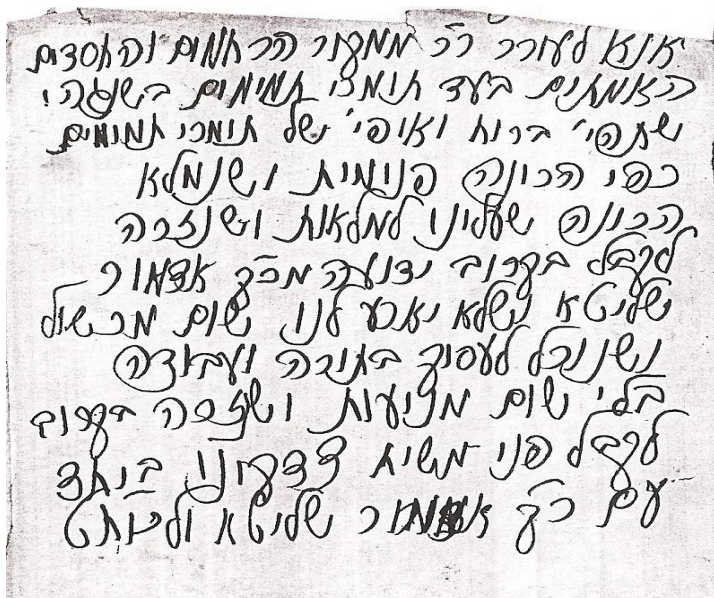 אנא לעורר ר״ר ממקור הרחמים והחסדים
האמתים בעד תומכי תמימים בשנגהי
שתהי׳ ברוח ואופי׳ של תומכי תמימים
כפי הכונה פנימית ושנמלא
הכונה שעלינו למלאות ושנזכה
לקבל בקרוב ידיעה מכ״ק אדמור
שליטא ושלא יארע לנו שום מכשול
ושנוכל לעסוק בתורה ועבודה
בלי שום מניעות ושנזכה בקרוב
לקבל פני משיח צדקינו ביחד
עם כ״ק אדמור שליטא ולכוח״ט